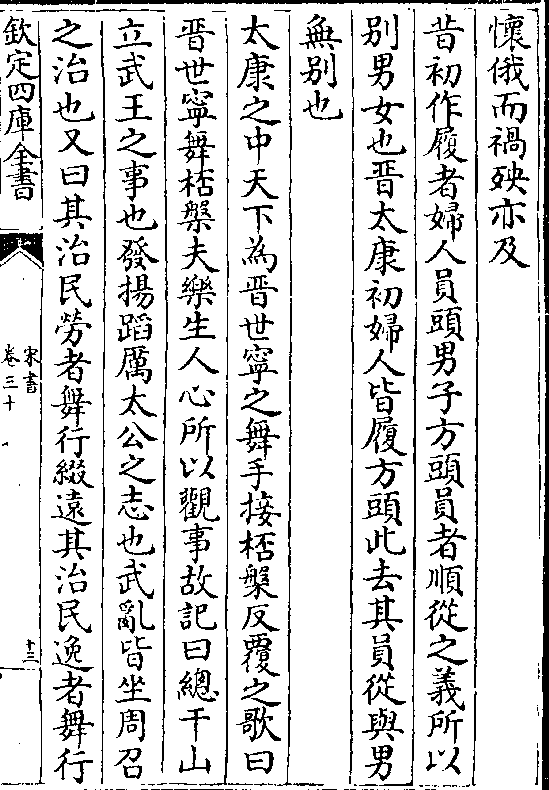 懷俄而禍殃亦及
昔初作履者婦人員頭男子方頭員者順從之義所以
别男女也晋太康初婦人皆履方頭此去其員從與男
無别也
太康之中天下為晋世寧之舞手接桮槃反覆之歌曰
晋世寧舞桮槃夫樂生人心所以觀事故記曰緫干山
立武王之事也發揚蹈厲太公之志也武亂皆坐周召
之治也又曰其治民勞者舞行綴逺其治民逸者舞行
欽定四庫全書
宋書
卷三十
十三